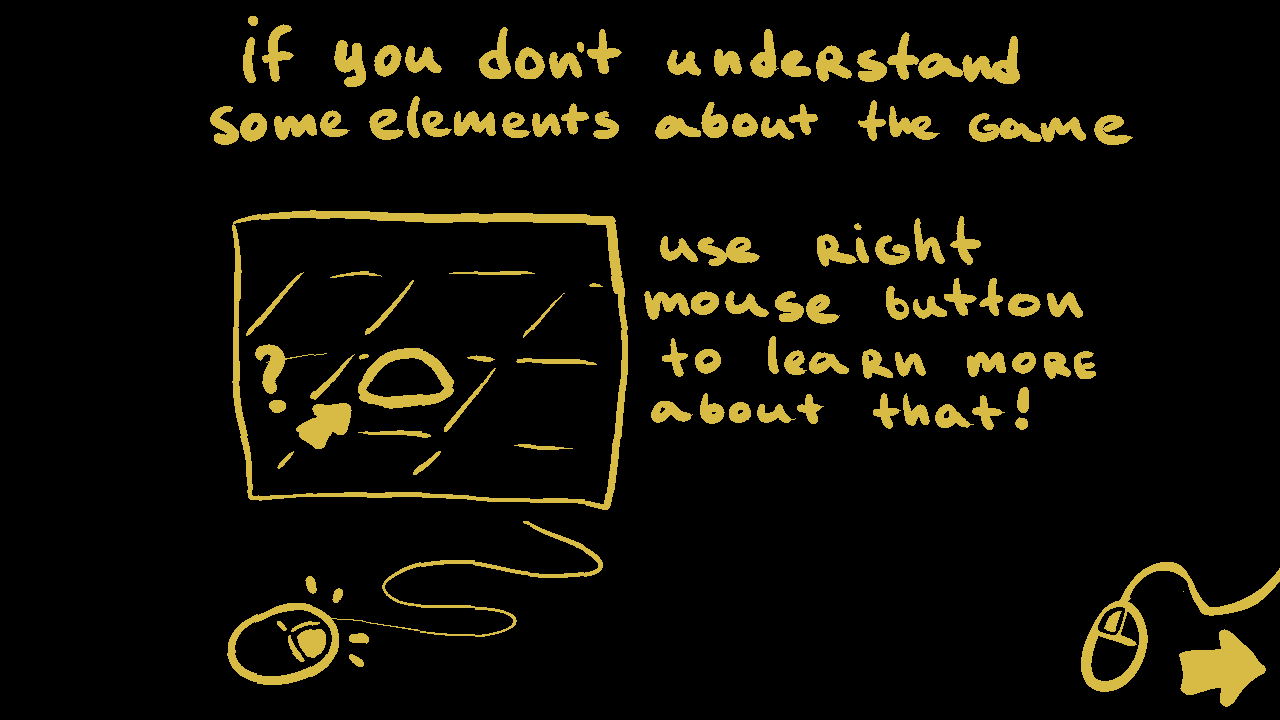 if you don't understand
some elements about the game
use right
mouse button
to learn more
about that!
?